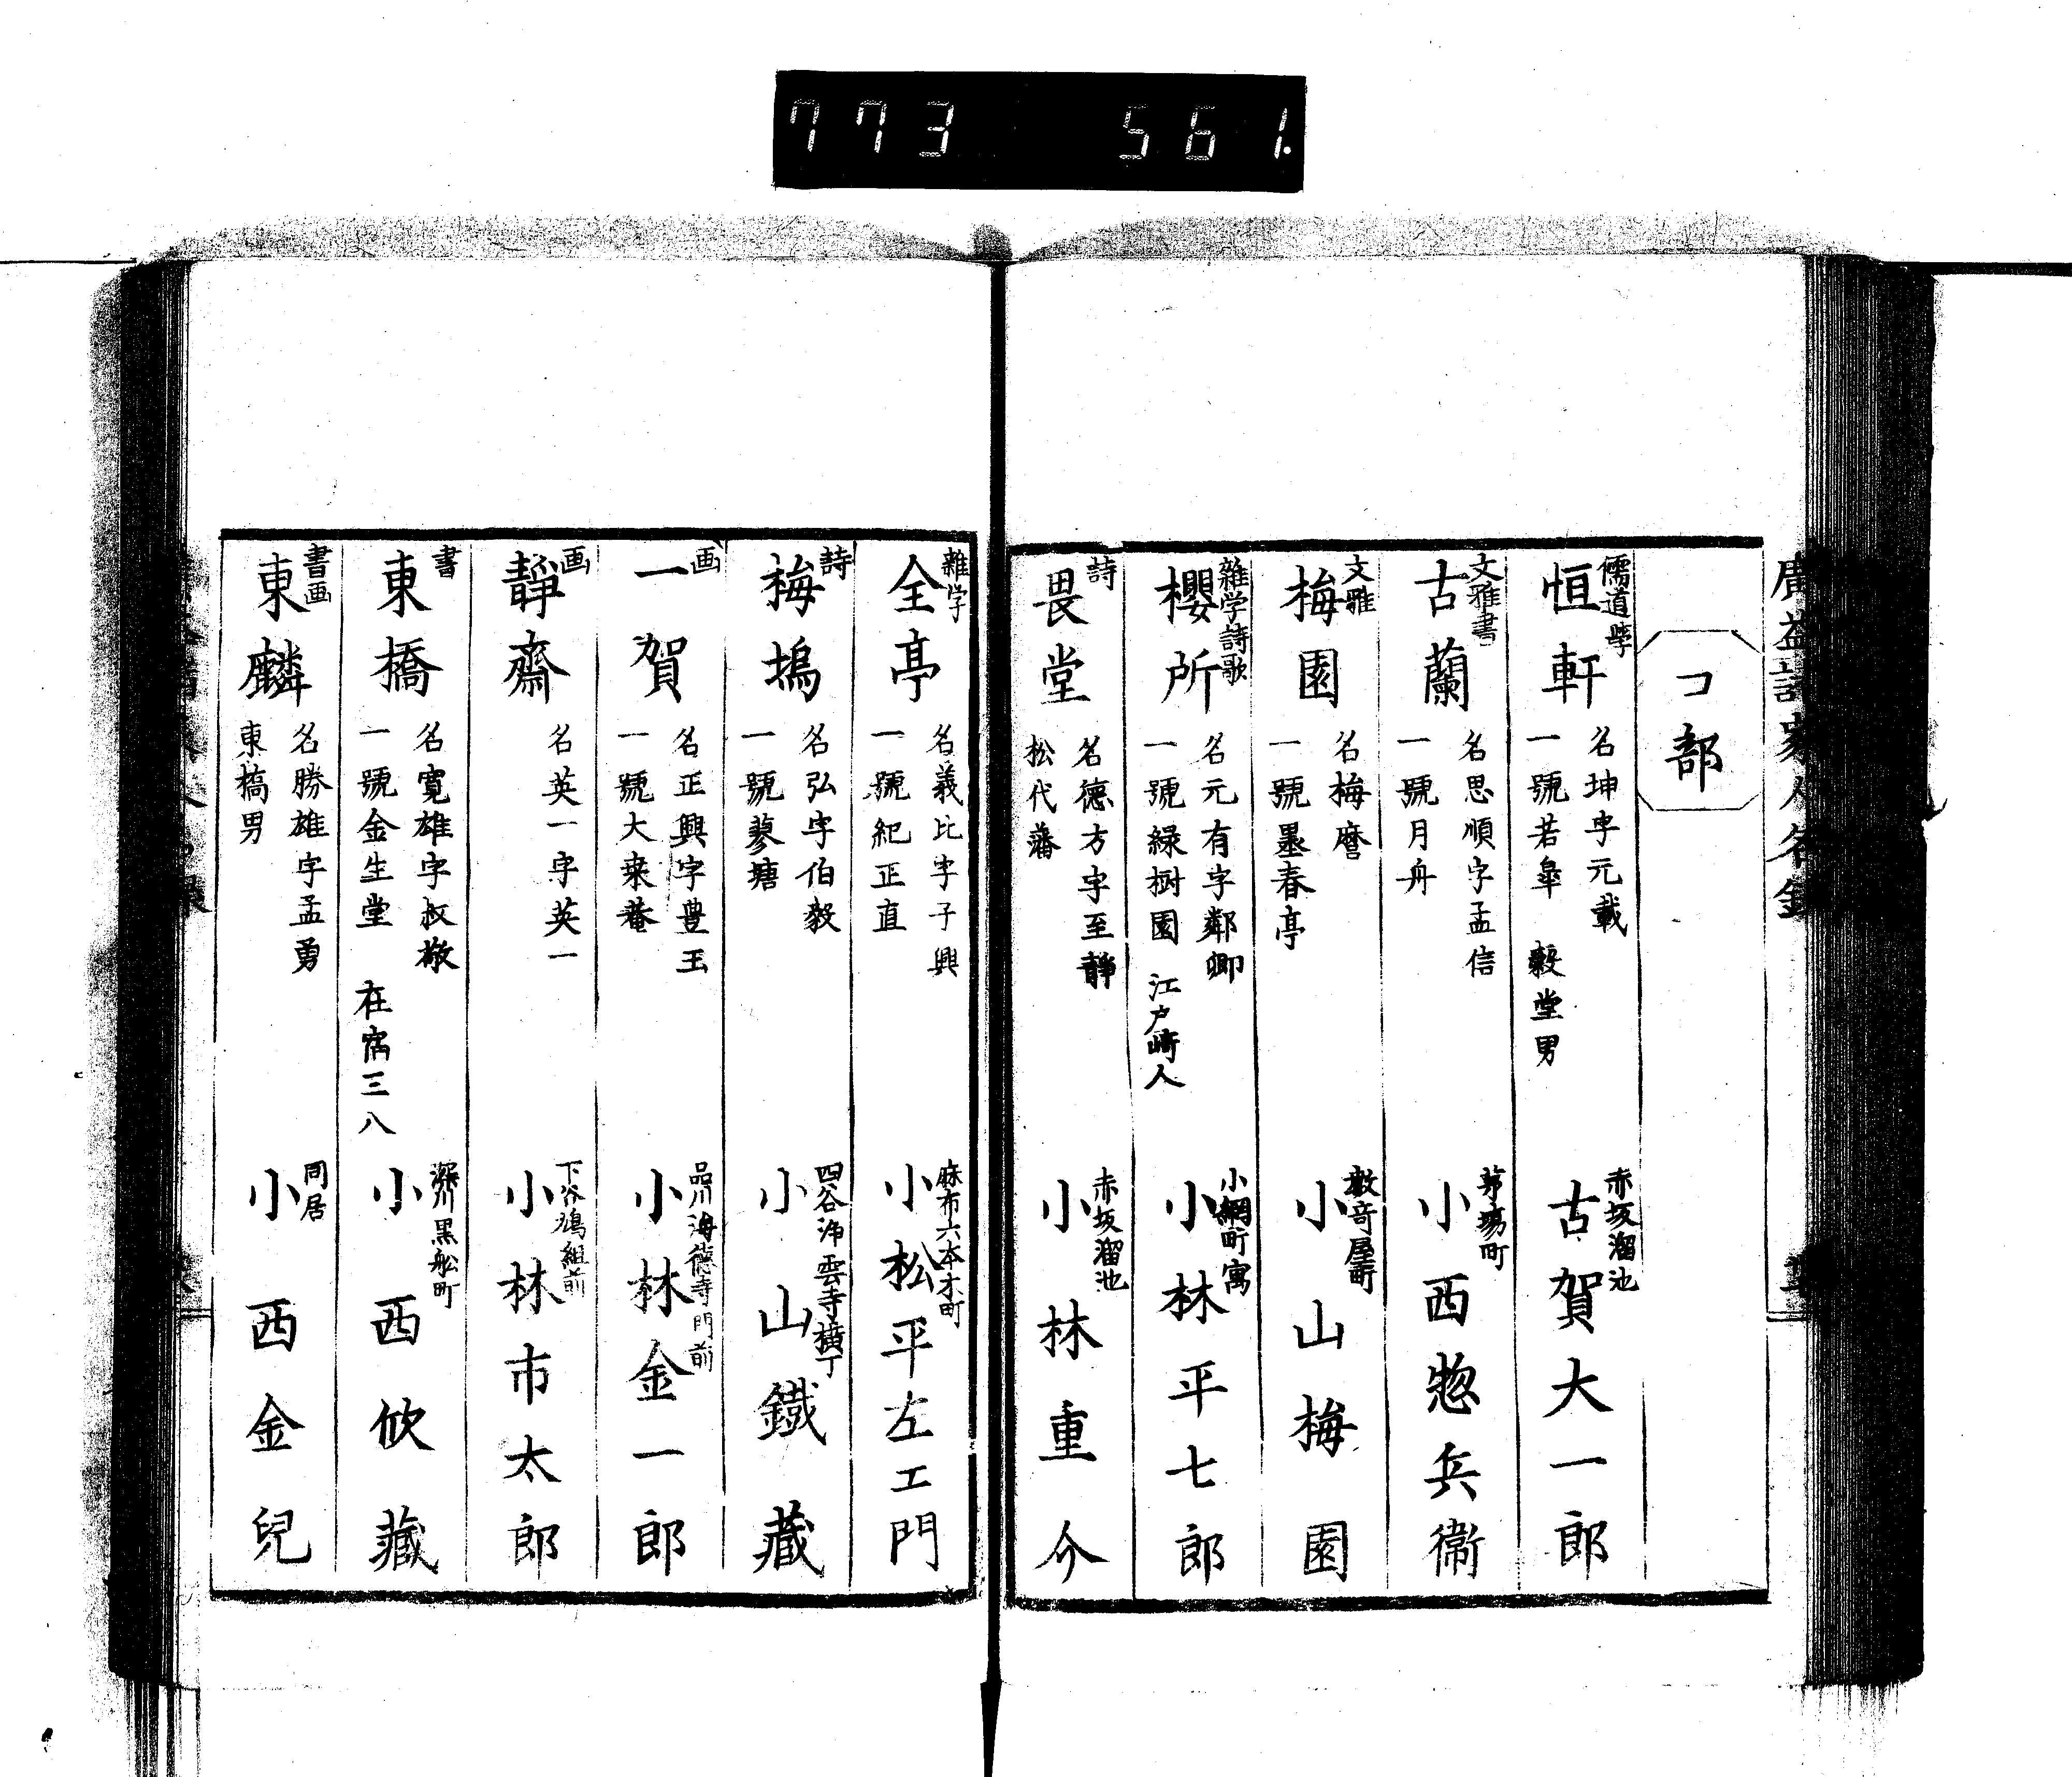 773 561.
コ部
儒道学
恒軒
名坤字元載
一號若皐 毅堂男
赤坂溜池
古賀大一郎
文雅書
古蘭
名思順字孟信
一號月舟
茅場町
小西惣兵衞
文雅
梅園
名梅麿
一號墨春亭
數竒屋町
小山梅園
雜学詩歌
櫻所
名元有字鄰卿
一號緑樹園 江戸崎人
小網町寓
小林平七郎
詩
畏堂
名德方字至靜
松代藩
赤坂溜池
小林重介
雜学
全亭
名義比字子興
一號紀正直
麻布六本木町
小松平左エ門
詩
梅塢
名弘字伯毅
一號蓼塘
四谷浄雲寺横丁
小山鐵藏
画
一賀
名正興字豊玉
一號大来菴
品川海德寺門前
小林金一郎
画
靜齋
名英一字英一
下谷鳩組前
小林市太郎
書
東橋
名寛雄字叔敬
一號金生堂 在宿三八
深川黒舩町
小西欣藏
書画
東麟
名勝雄字孟勇
東橋男
同居
小西金兒